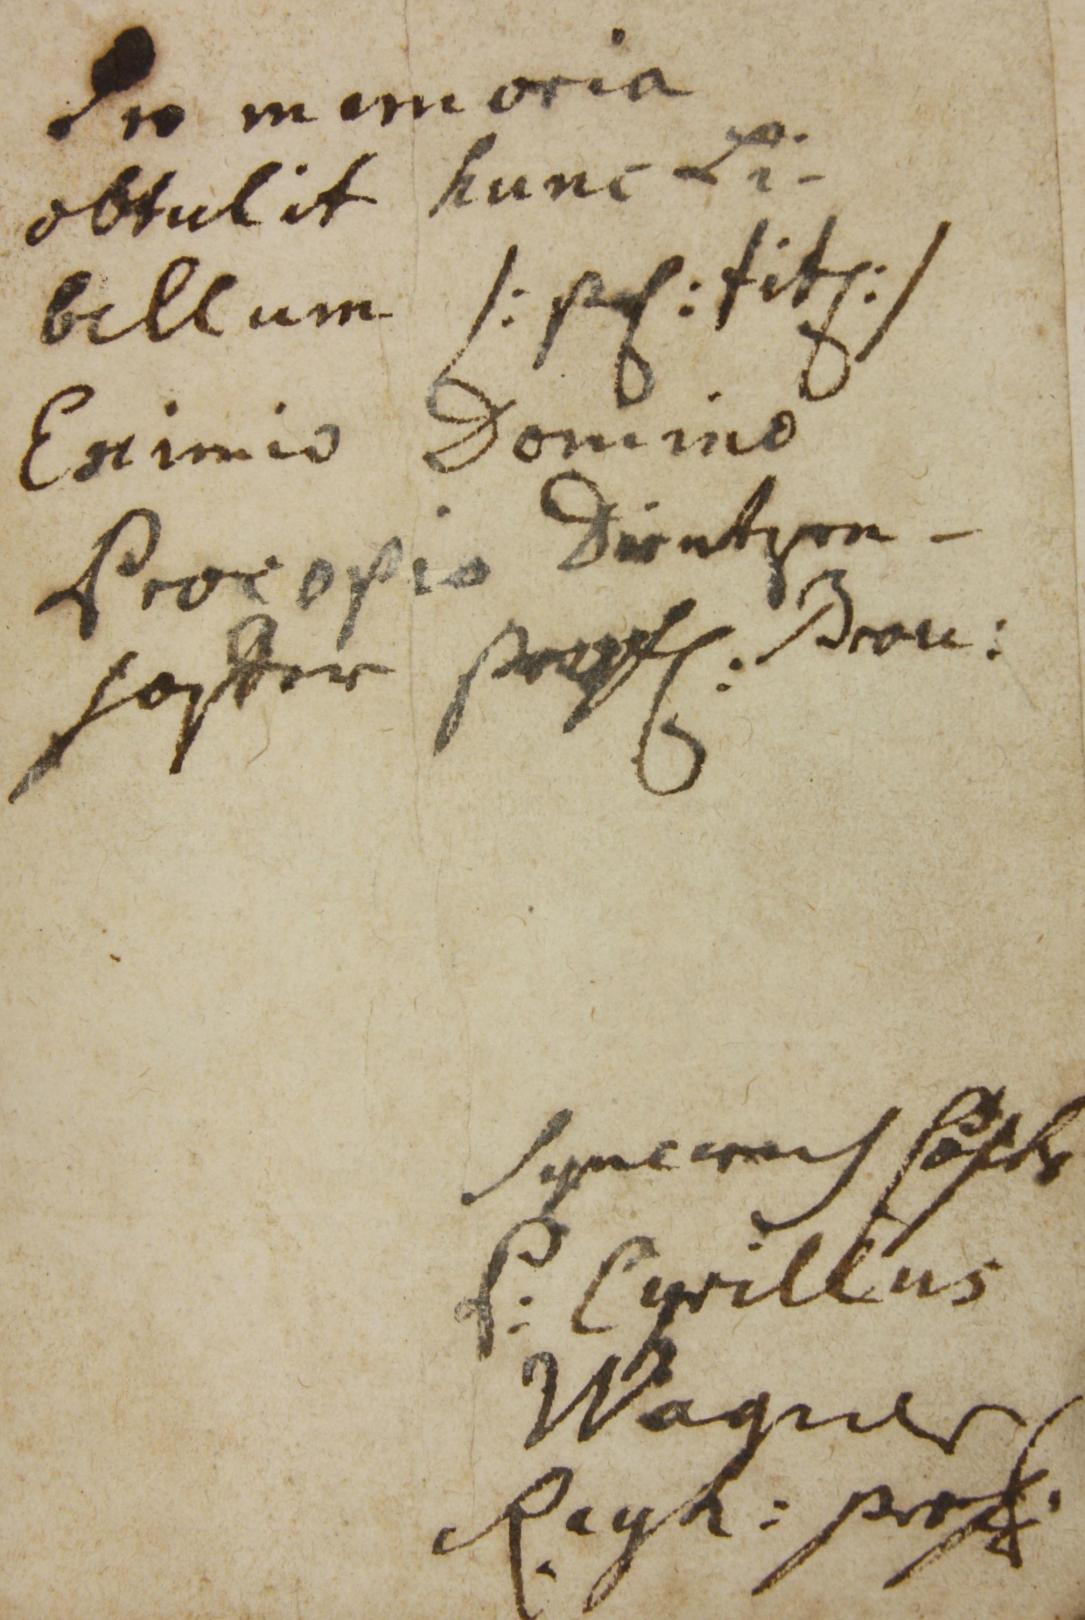 Pro memoria
obtulit hunc Li-
bellum /: pl: tit: /
Eximio Domino
Procopio Dientzen-
hoffer Proff: Brou:
Syncerus
P: Cyrillus
Wagner
Rayh: Prof: